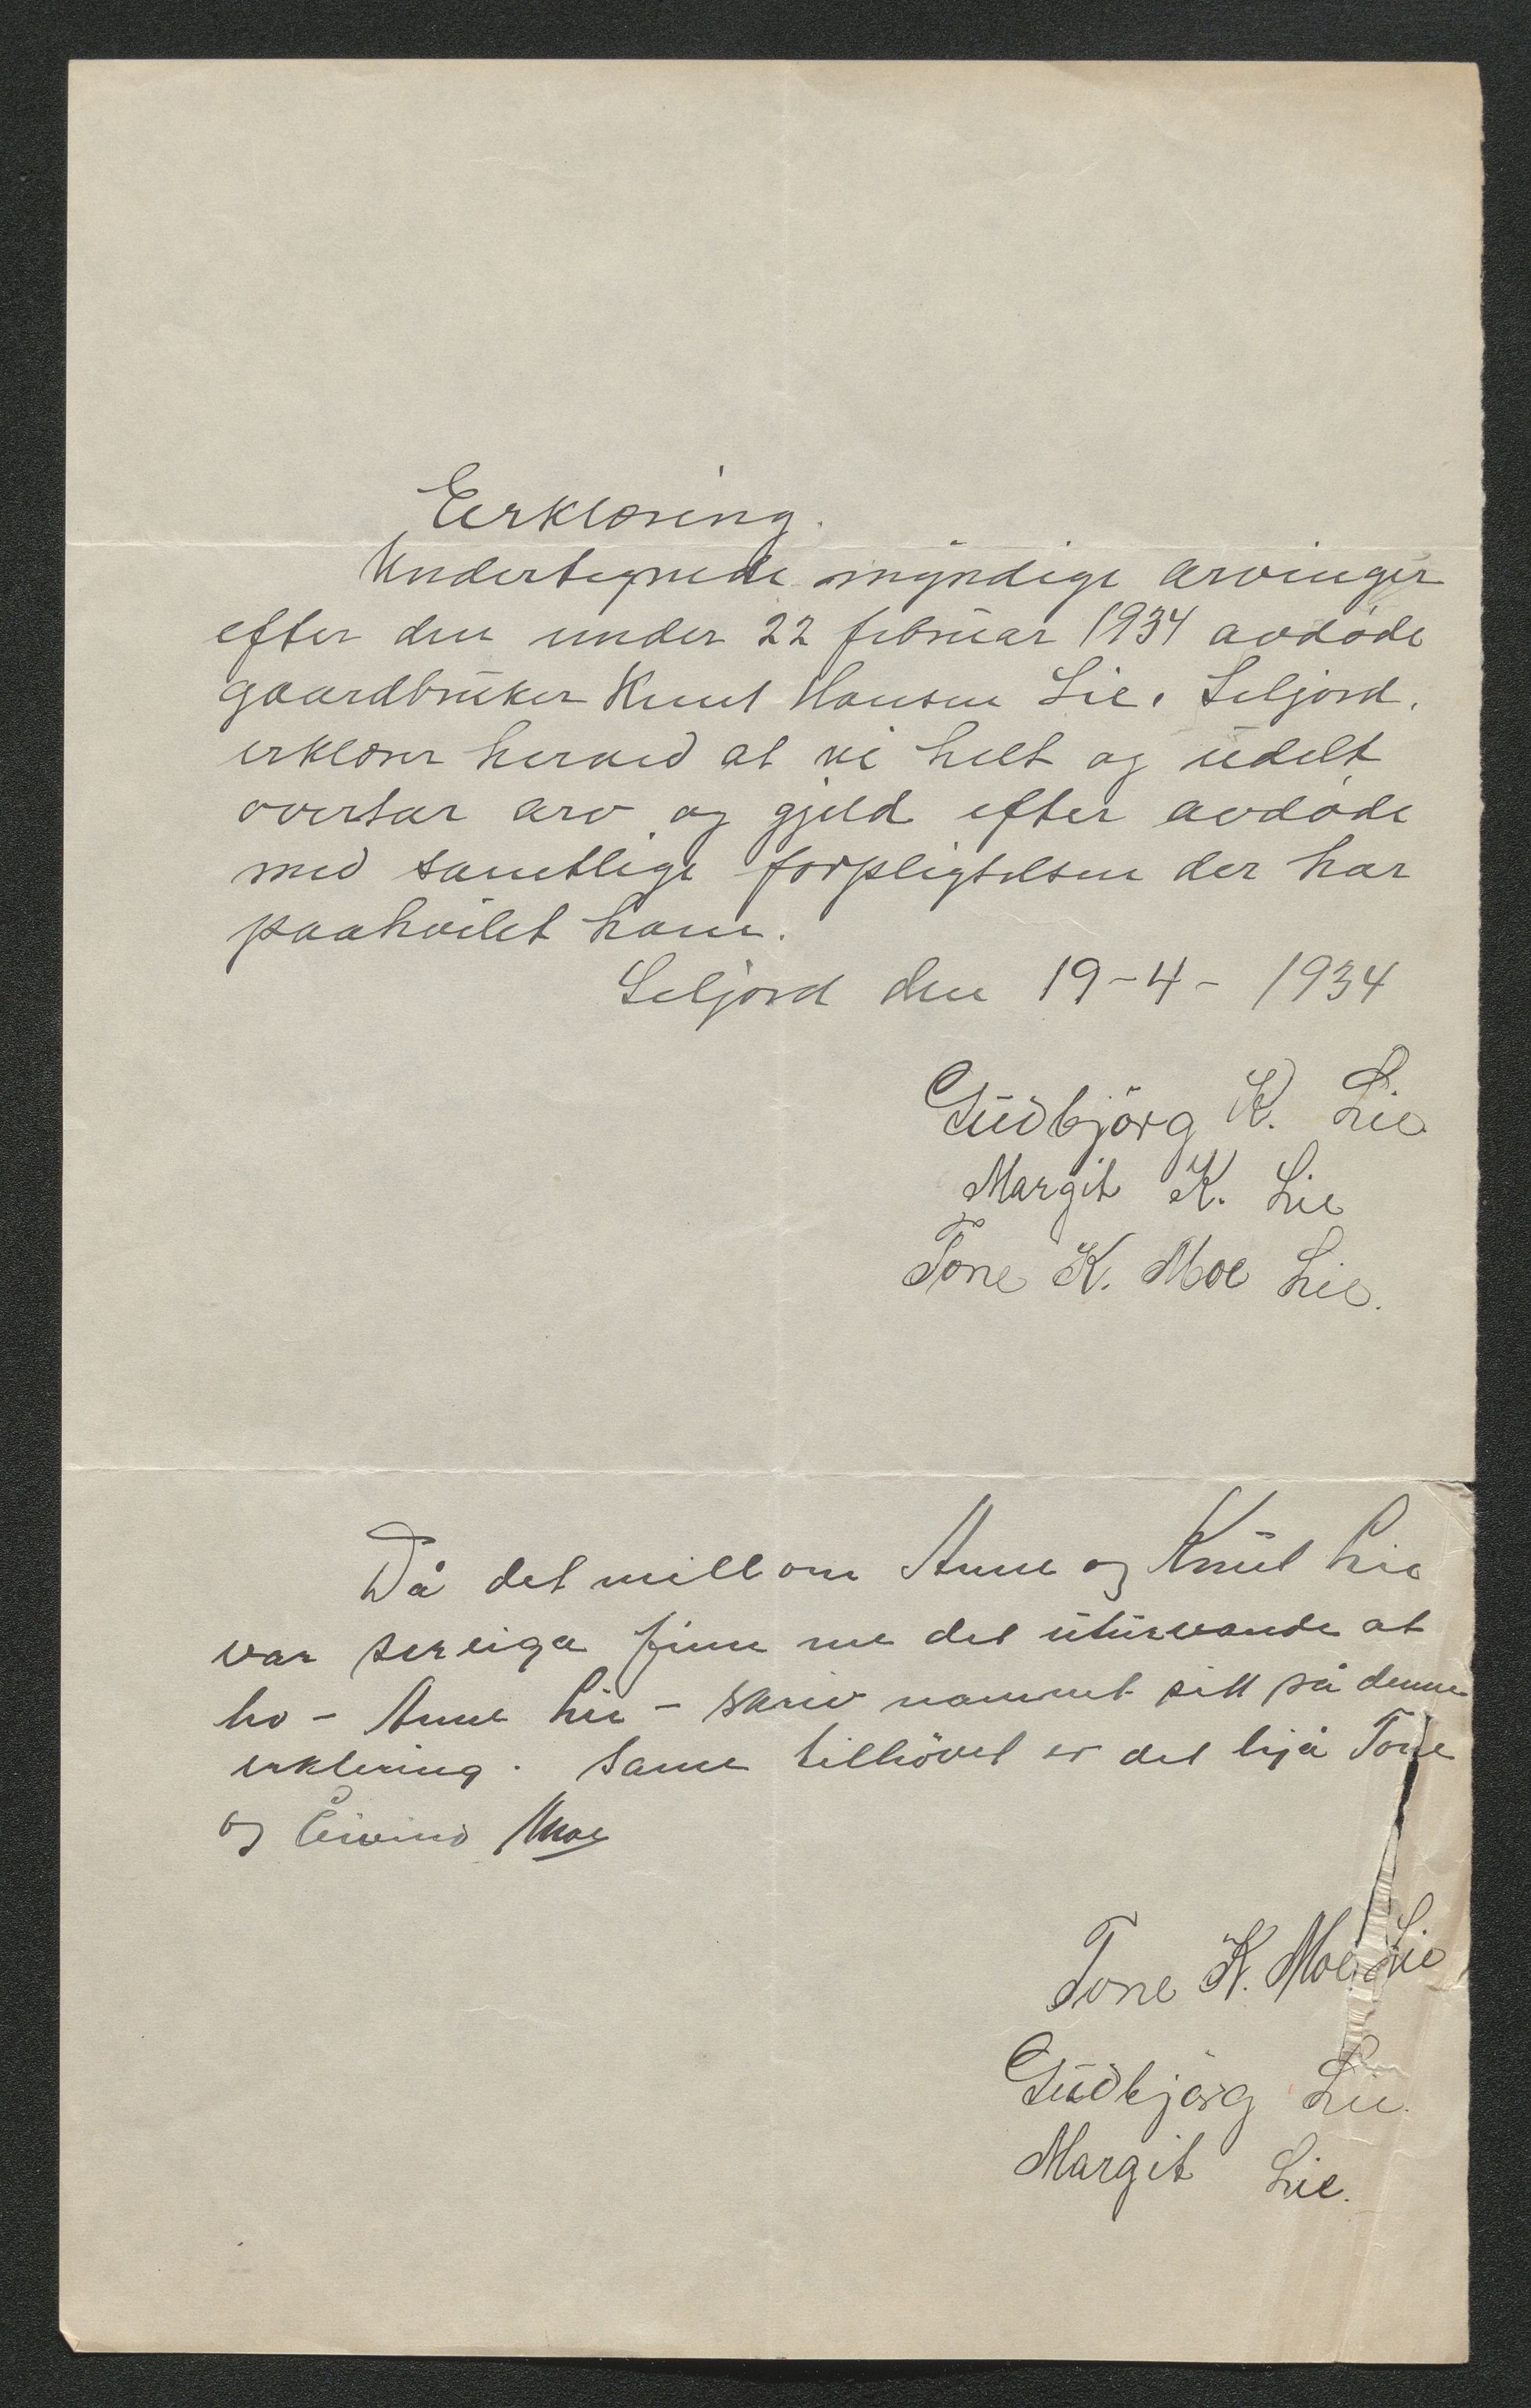 Eerklæring.
Undertegnede myndige arvinger
efter den under 22 februar 1934 avdöde
gaardbruker Knut Hansen Lie, Seljord,
erklærer herved at vi helt og udelt
overtar arv og gjeld efter avdöde
med samtlige forpligtelsen der har
paahvilet ham.
Seljord den 19-4- 1934
Gudbjörg K. Lie
Margit K. Lie
Tone K. Moe Lie.
Då det millom Anne og Knut Lie
var sereiga finn me det uturvande at
ho - Anne Lie - skriv namnet sitt på denne
erklering. Same tilhövet er det hjå Tone
og Eivind Moe
Tone K. Moe Lie
Gudbjörg Lie.
Margit Lie.